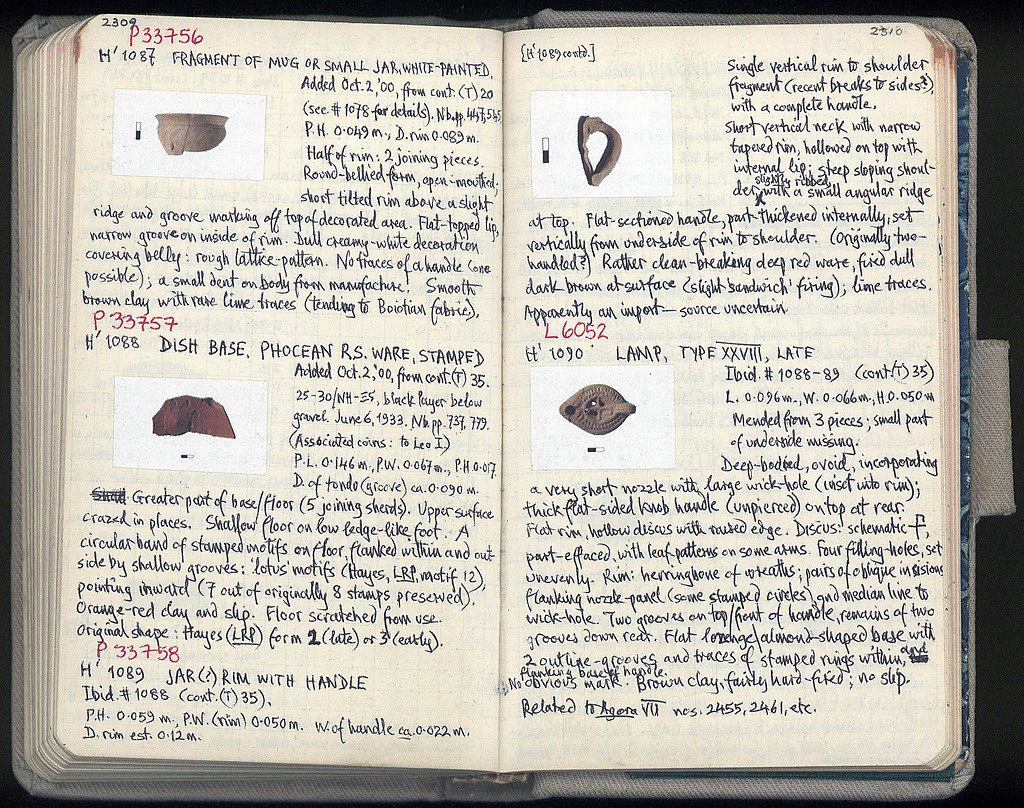 2309
P 33756
H' 1087 FRAGMENT OF MUG OR SMALL JAR, WHITE-PAINTED.
Added Oct. 2, '00, from cont. (T) 20
(see # 1078 for details). Nb. pp. 447, 545.
P.H. 0.049 m., D. rim 0.089 m.
Half of rim: 2 joining pieces.
Round-bellied form, open-mouthed:
short tilted rim above a slight
ridge and groove marking off top of decorated area. Flat-topped lip,
narrow groove on inside of rim. Dull creamy-white decoration
covering belly: rough lattice-pattern. No traces of a handle (one
possible); a small dent on body from manufacture. Smooth
brown clay with rare lime traces (tending to Boiotian fabric).
P 33757
H' 1088 DISH BASE, PHOCEAN R.S. WARE, STAMPED
Added Oct. 2, '00, from cont. (T) 35.
25-30/ΝΗ-ΞΕ, black layer below
gravel. June 6, 1933. Nb. pp. 737, 779.
(Associated coins: to Leo I)
P.L. 0.146 m., P.W. 0.067 m., P.H. 0.017
D. of tondo (groove) ca. 0.090 m.
Greater part of base/floor (5 joining sherds). Upper surface
crazed in places. Shallow floor on low ledge-like foot. A
circular band of stamped motifs on floor, flanked within and out-
side by shallow grooves: 'lotus' motifs (Hayes, LRP, motif 12),
pointing inward (7 out of originally 8 stamps preserved).
Orange-red clay and slip. Floor scratched from use.
Original shape: Hayes (LRP) form 2 (late) or 3 (early).
P 33758
H' 1089 JAR (?) RIM WITH HANDLE
Ibid. # 1088 (cont. (T) 35).
P.H. 0.059 m., P.W. (rim) 0.050 m. W. of handle ca. 0.022 m.
D. rim est. 0.12 m.
2310
[H' 1089 contd.]
Single vertical rim to shoulder
fragment (recent breaks to sides?),
with a complete handle.
Short vertical neck with narrow
tapered rim, hollowed on top with
internal lip; steep sloping shoul-
der, slightly ribbed, with a small angular ridge
at top. Flat-sectioned handle, part-thickened internally, set
vertically from underside of rim to shoulder. (Originally two-
handled?) Rather clean-breaking deep red ware, fired dull
dark brown at surface (slight 'sandwich' firing); lime traces.
Apparently an import — source uncertain.
L 6052
H' 1090 LAMP, TYPE XXVIII, LATE
Ibid. # 1088-89 (cont. (T) 35)
L. 0.096 m., W. 0.066 m., H. 0.050 m
Mended from 3 pieces; small part
of underside missing.
Deep-bodied, ovoid, incorporating
a very short nozzle with large wick-hole (inset into rim);
thick flat-sided knob handle (unpierced) on top at rear.
Flat rim, hollow discus with raised edge. Discus: schematic ,
part-effaced, with leaf-patterns on some arms. Four filling-holes, set
unevenly. Rim: herringbone of wreaths; pairs of oblique incisions
flanking nozzle-panel (some stamped circles), and median line to
wick-hole. Two grooves on top/front of handle, remains of two
grooves down rear. Flat lozenge/almond-shaped base with
2 outline-grooves and traces of stamped rings within, and
flanking base of handle.
No obvious mark. Brown clay, fairly hard-fired; no slip.
Related to Agora VII nos. 2455, 2461, etc.